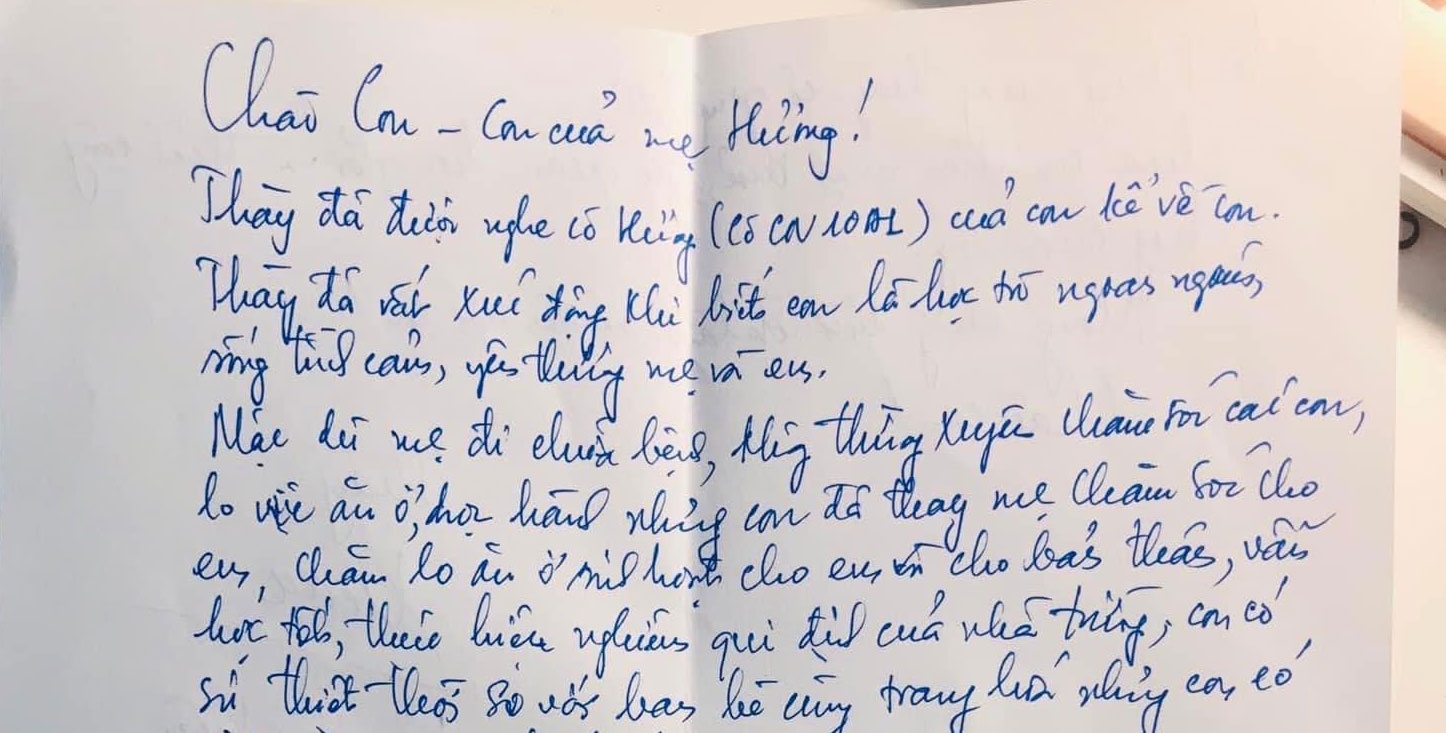 Chào Con - Con của mẹ Hường!
Thày đã được nghe cô Hường (Cô CN 10A1) của con kể về con.
Thày đã rất xúc động khi biết con là học trò ngoan ngoãn,
sống tình cảm, yêu thương mẹ và em.
Mặc dù mẹ đi chữa bệnh, không thường xuyên chăm sóc các con,
lo việc ăn ở, học hành nhưng con đã thay mẹ chăm sóc cho
em, chăm lo ăn ở sinh hoạt cho em và cho bản thân, vẫn
học tốt, thực hiện nghiêm qui định của nhà trường, con có
sự thiệt thòi so với bạn bè cùng trang lứa nhưng con có